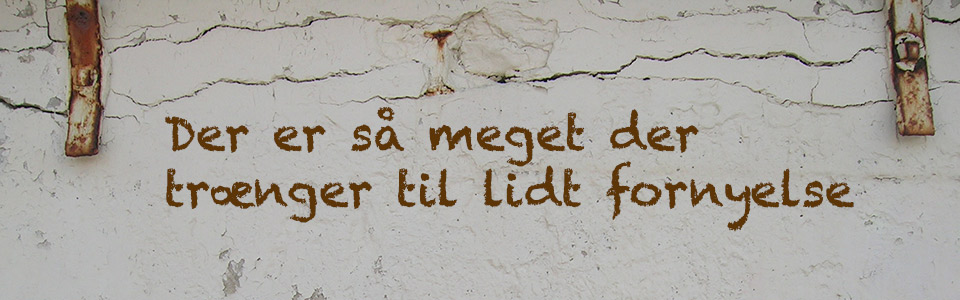 Der er så meget der
trænger til lidt fornyelse